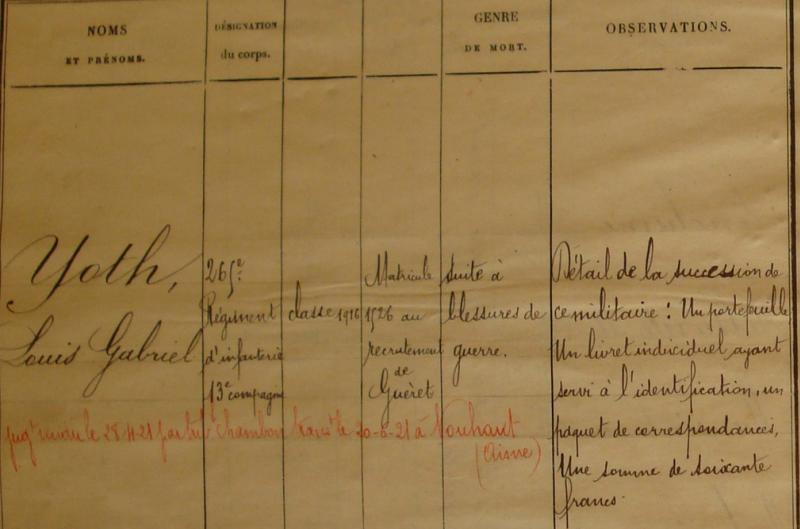 NOMS
ET PRÉNOMS.
DÉSIGNATION
du corps.
GENRE
DE MORT.
OBSERVATIONS.
Yoth,
Louis Gabriel
265e
Régiment
d'infanterie
13e compagnie
classe 1916
Matricule
1526 au
recrutement
de
Guéret
Suite à
blessures de
guerre.
Détail de la succession de
ce militaire : Un portefeuille
Un livret individuel ayant
servi à l'identification, un
paquet de correspondances,
Une somme de soixante
francs.
le 28-4-21 par Chambon le 20-6-21 à Nouhant
(Aisne)